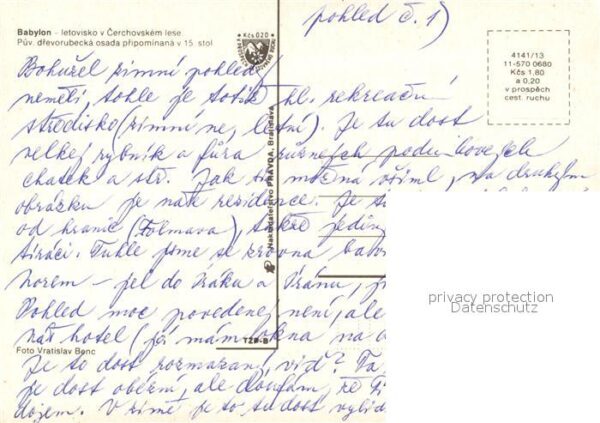 Babylon - letovisko v Čerchovském lese
Pův. dřevorubecká osada připomínaná v 15. stol
Kčs 0.20
pohled č. 1)
4141/13
11-570 0680
Kčs 1,80
a 0,20
v prospěch
cest. ruchu
Bohužel zimní pohledy
neměli, tohle je totiž hl. rekreační
středisko (zimní ne, letní). Je tu dost
velkej rybník a fůra různejch podnikovejch
chatek a stř. Jak sis možná všiml, na druhým
obrázku je naše rezidence. Je
od hranic (Folmava), takže jediný
Tuhle jsme se zrovna bavo
norem - jel do Iráku a Iránu,
Pohled moc povedenej není, ale
náš hotel (já mám okna na
Je to dost rozmazaný, viď?
je dost obecní, ale doufám, že Ti
dojem. V zimě je to tu dost vylid
Nakladatelstvo PRAVDA, Bratislava
TZP-B
Foto Vratislav Benc
privacy protection
Datenschutz